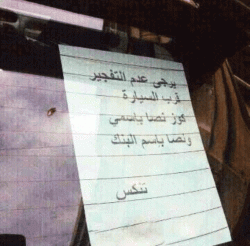 يرجى عدم التفجير
قرب السيارة
كوز نصا باسمي
ونصا باسم البنك
تنكس